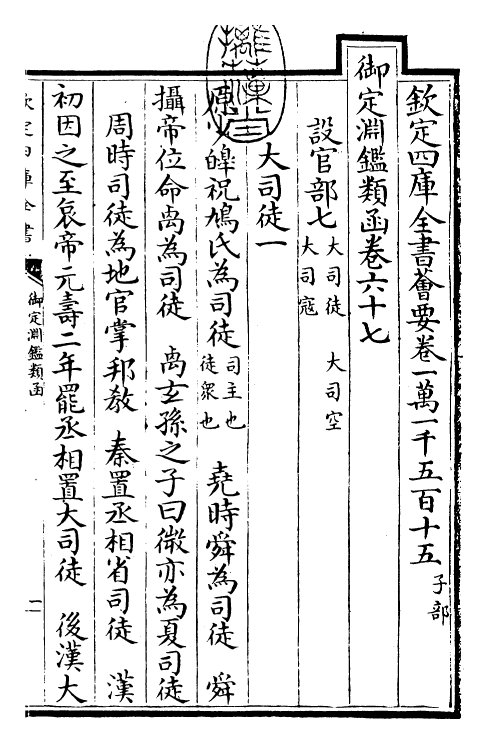 欽定四庫全書薈要卷一萬一千五百十五 子部
御定淵鑑類函卷六十七
設官部七 大司徒 大司空
大司寇
大司徒一
昊皞祝鳩氏為司徒 司主也
徒衆也 堯時舜為司徒 舜
攝帝位命卨為司徒 卨玄孫之子曰微亦為夏司徒
周時司徒為地官掌邦教 秦置丞相省司徒 漢
初因之至哀帝元壽二年罷丞相置大司徒 後漢大
欽定四庫全書 御定淵鑑類函 一